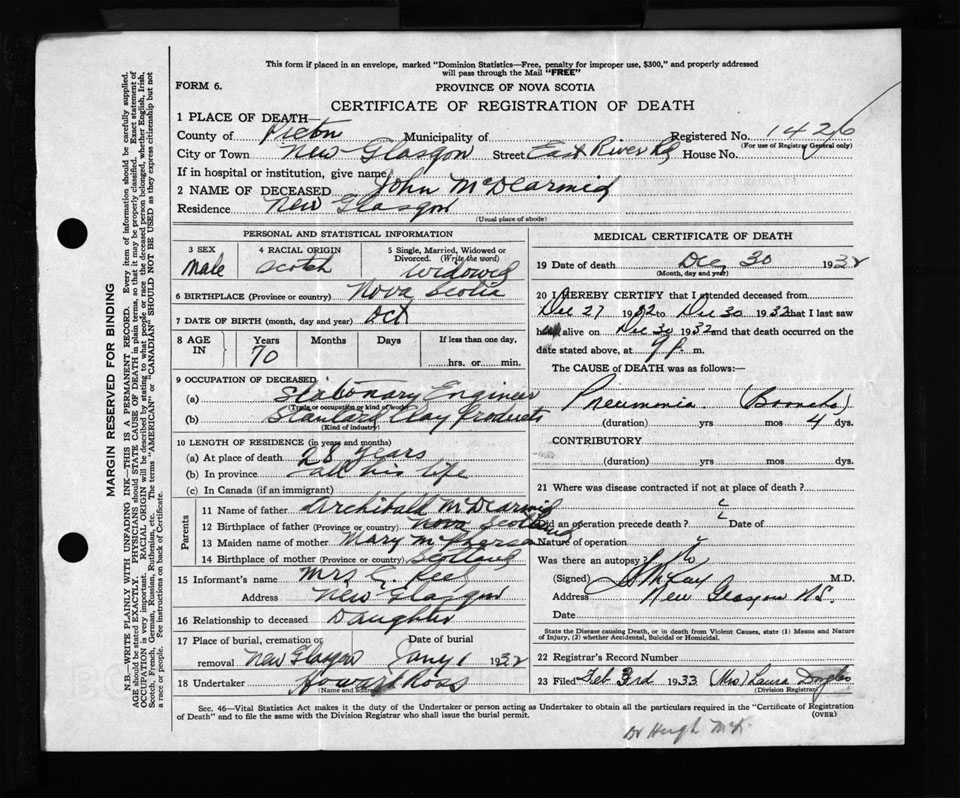 This form if placed in an envelope, marked "Dominion Statistics—Free, penalty for improper use, $300," and properly addressed
will pass through the Mail "FREE"
FORM 6.
PROVINCE OF NOVA SCOTIA
CERTIFICATE OF REGISTRATION OF DEATH
1 PLACE OF DEATH—
County of Pictou Municipality of Registered No. 1426
(For use of Registrar General only)
City or Town New Glasgow Street East River Rd House No.
If in hospital or institution, give name
2 NAME OF DECEASED John McDearmid
Residence New Glasgow
(Usual place of abode)
PERSONAL AND STATISTICAL INFORMATION
3 SEX 4 RACIAL ORIGIN 5 Single, Married, Widowed or
Divorced. (Write the word)
Male Scotch Widowed
6 BIRTHPLACE (Province or country) Nova Scotia
7 DATE OF BIRTH (month, day and year) Oct
8 AGE IN Years Months Days If less than one day,
70
hrs. or min.
9 OCCUPATION OF DECEASED
(a) Stationary Engineer
(Trade or occupation or kind of work)
(b) Standard Clay Products
(Kind of industry)
10 LENGTH OF RESIDENCE (in years and months)
(a) At place of death 28 years
(b) In province all his life
(c) In Canada (if an immigrant)
Parents
11 Name of father Archibald McDearmid
12 Birthplace of father (Province or country) Nova Scotia
13 Maiden name of mother Mary McPherson
14 Birthplace of mother (Province or country) Scotland
15 Informant's name Mrs
Address New Glasgow
16 Relationship to deceased Daughter
17 Place of burial, cremation or Date of burial
removal New Glasgow Jany 1 1932
18 Undertaker Howard Ross
(Name and address)
MEDICAL CERTIFICATE OF DEATH
19 Date of death Dec 30 1932
(Month, day and year)
20 I HEREBY CERTIFY that I attended deceased from
Dec 27 1932 to Dec 30 1932 that I last saw
alive on Dec 30 1932 and that death occurred on
date stated above, at 9 p. m.
The CAUSE of DEATH was as follows:—
Pneumonia (Broncho)
(duration) yrs mos 4 dys.
CONTRIBUTORY
(duration) yrs. mos. dys.
21 Where was disease contracted if not at place of death?
Did an operation precede death? Date of
Nature of operation
Was there an autopsy? No
(Signed) McKay M.D.
Address New Glasgow N.S.
Date
State the Disease causing Death, or in death from Violent Causes, state (1) Means and Nature
of Injury, (2) whether Accidental, Suicidal or Homicidal.
22 Registrar's Record Number
23 Filed Feb 3rd 1933 (Mrs) Laura Douglas
(Division Registrar)
Sec. 46—Vital Statistics Act makes it the duty of the Undertaker or person acting as Undertaker to obtain all the particulars required in the "Certificate of Registration
of Death" and to file the same with the Division Registrar who shall issue the burial permit.
(OVER)
Dr Hugh McK.
MARGIN RESERVED FOR BINDING
N.B.—WRITE PLAINLY WITH UNFADING INK—THIS IS A PERMANENT RECORD. Every item of information should be carefully supplied.
AGE should be stated EXACTLY. PHYSICIANS should STATE CAUSE OF DEATH in plain terms, so that it may be properly classified. Exact statement of
OCCUPATION is very important. RACIAL ORIGIN will be described by stating to what people or race the deceased person belonged, whether English, Irish,
Scotch, French, German, Russian, Ruthenian, etc. The terms "AMERICAN" or "CANADIAN" SHOULD NOT BE USED as they express citizenship but not
a race or people. Fee instructions on back of Certificate.